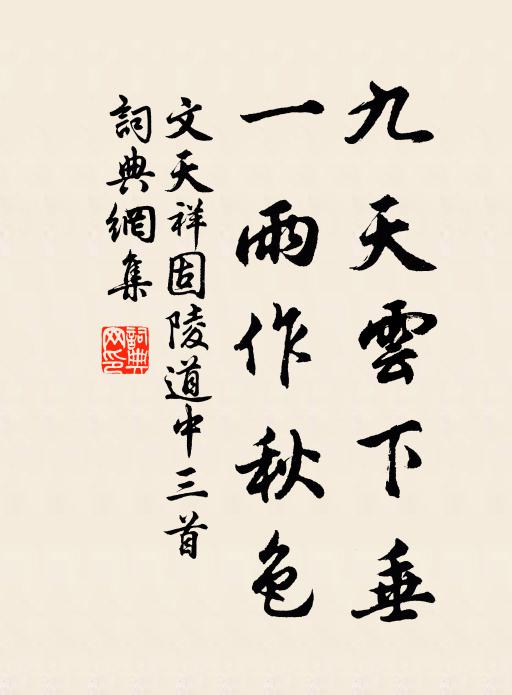 九天雲下垂
一雨作秋色
文天祥固陵道中三首
詞典網集
詞典網印